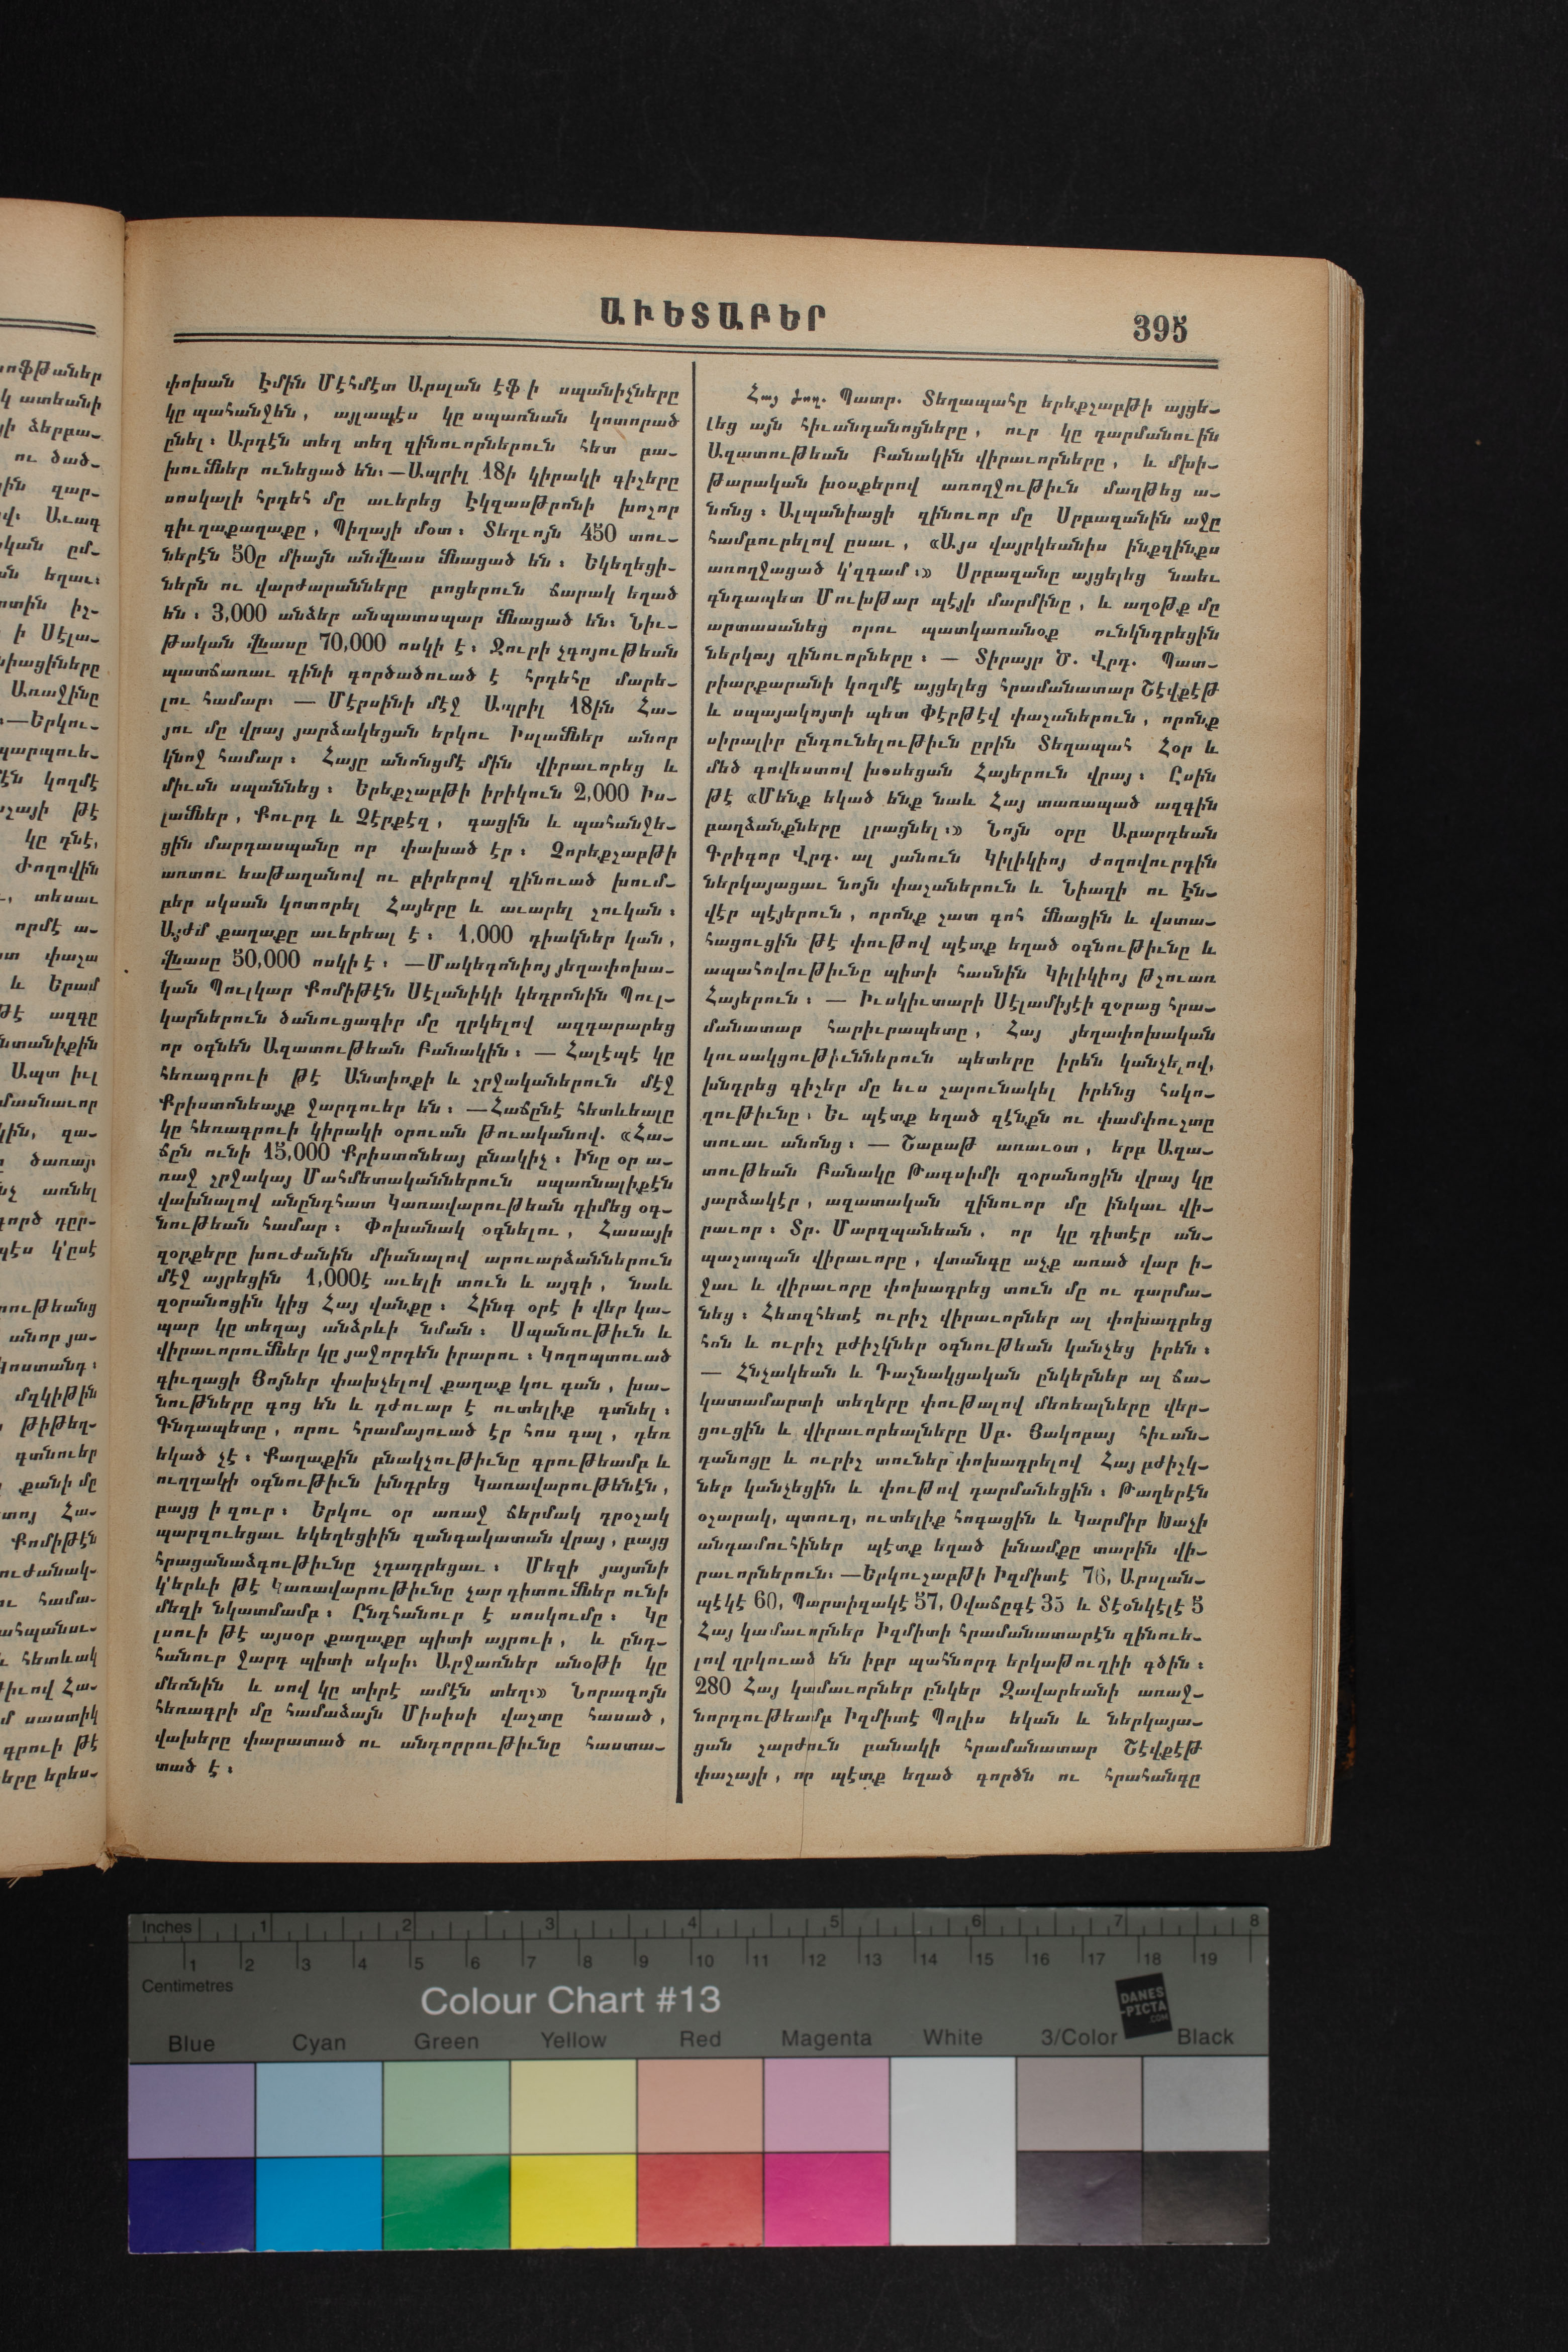 ԱՒԵՏԱԲԵՐ
395
փոխան Էմին Մէհմէտ Արսլան էֆ ի սպանիչները
կը պահանջեն, այլապէս կը սպառնան կոտորած
ընել։ Արդէն տեղ տեղ զինուորներուն հետ բա-
խումներ ունեցած են։—Ապրիլ 18ի կիրակի գիշերը
սոսկալի հրդեհ մը աւերեց Էկզասթրոնի խոշոր
գիւղաքաղաքը, Պիղայի մօտ։ Տեղւոյն 450 տու-
ներէն 50ը միայն անվնաս մնացած են։ Եկեղեցի-
ներն ու վարժարանները բոցերուն ճարակ եղած
են։ 3,000 անձեր անպատսպար մնացած են։ Նիւ-
թական վնասը 70,000 ոսկի է։ Ջուրի չգոյութեան
պատճառաւ գինի գործածուած է հրդեհը մարե-
լու համար։ — Մէրսինի մէջ Ապրիլ 18ին Հա-
յու մը վրայ յարձակեցան երկու Իսլամներ անոր
կնոջ համար։ Հայը անոնցմէ մին վիրաւորեց և
միւսն սպաննեց։ Երեքշաբթի իրիկուն 2,000 Իս-
լամներ, Քուրդ և Չէրքէզ, գացին և պահանջե-
ցին մարդասպանը որ փախած էր։ Չորեքշաբթի
առտու եաթաղանով ու բիրերով զինուած խում-
բեր սկսան կոտորել Հայերը և աւարել շուկան։
Այժմ քաղաքը աւերեալ է։ 1,000 դիակներ կան,
վնասը 50,000 ոսկի է։ —Մակեդոնիոյ յեղափոխա-
կան Պուլկար Քոմիթէն Սէլանիկի կեդրոնին Պուլ-
կարներուն ծանուցագիր մը ղրկելով ազդարարեց
որ օգնեն Ազատութեան Բանակին։ — Հալէպէ կը
հեռագրուի թէ Անտիոքի և շրջականերուն մէջ
Քրիստոնեայք ջարդուեր են։ —Հաճընէ հետևեալը
կը հեռագրուի կիրակի օրուան թուականով. «Հա-
ճըն ունի 15,000 Քրիստոնեայ բնակիչ։ Ինը օր ա-
ռաջ շրջակայ Մահմետականներուն սպառնալիքէն
վախնալով անընդհատ Կառավարութեան դիմեց օգ-
նութեան համար։ Փոխանակ օգնելու, Հասայի
զօրքերը խուժանին միանալով արուարձաններուն
մէջ այրեցին 1,000է աւելի տուն և այգի, նաև
զօրանոցին կից Հայ վանքը։ Հինգ օրէ ի վեր կա-
պար կը տեղայ անձրևի նման։ Սպանութիւն և
վիրաւորումներ կը յաջորդեն իրարու։ Կողոպտուած
գիւղացի Յոյներ փախչելով քաղաք կու գան, խա-
նութները գոց են և դժուար է ուտելիք գտնել։
Գնդապետը, որու հրամայուած էր հոս գալ, դեռ
եկած չէ։ Քաղաքին բնակչութիւնը գրութեամբ և
ուղղակի օգնութիւն խնդրեց Կառավարութենէն,
բայց ի զուր։ Երկու օր առաջ ճերմակ դրօշակ
պարզուեցաւ եկեղեցիին զանգակատան վրայ, բայց
հրացանաձգութիւնը չդադրեցաւ։ Մեզի յայտնի
կ'երևի թէ Կառավարութիւնը չար դիտումներ ունի
մեզի նկատմամբ։ Ընդհանուր է սոսկումը։ Կը
լսուի թէ այսօր քաղաքը պիտի այրուի, և ընդ-
հանուր ջարդ պիտի սկսի։ Արջառներ անօթի կը
մեռնին և սով կը տիրէ ամէն տեղ։» Նորագոյն
հեռագրի մը համաձայն Միսիսի վաշտը հասած,
վախերը փարատած ու անդորրութիւնը հաստա-
տած է։
Հայ Ժող. Պատր. Տեղապահը երեքշաբթի այցե-
լեց այն հիւանդանոցները, ուր կը դարմանուին
Ազատութեան Բանակին վիրաւորները, և մխի-
թարական խօսքերով առողջութիւն մաղթեց ա-
նոնց։ Ալպանիացի զինուոր մը Սրբազանին աջը
համբուրելով ըսաւ, «Այս վայրկեանիս ինքզինքս
առողջացած կ'զգամ։» Սրբազանը այցելեց նաեւ
գնդապետ Մուխթար պէյի մարմինը, և աղօթք մը
արտասանեց որու պատկառանօք ունկնդրեցին
ներկայ զինուորները։ — Տիրայր Ծ. Վրդ. Պատ-
րիարքարանի կողմէ այցելեց հրամանատար Շէվքէթ
և սպայակոյտի պետ Փէրթէվ փաշաներուն, որոնք
սիրալիր ընդունելութիւն ըրին Տեղապահ Հօր և
մեծ գովեստով խօսեցան Հայերուն վրայ։ Ըսին
թէ «Մենք եկած ենք նաև Հայ տառապած ազգին
բաղձանքները լրացնել։» Նոյն օրը Աբարդեան
Գրիգոր Վրդ. ալ յանուն Կիլիկիոյ ժողովուրդին
ներկայացաւ նոյն փաշաներուն և Նիազի ու Էն-
վէր պէյերուն, որոնք շատ գոհ մնացին և վստա-
հացուցին թէ փութով պէտք եղած օգնութիւնը և
ապահովութիւնը պիտի հասնին Կիլիկիոյ թշուառ
Հայերուն։ — Իւսկիւտարի Սէլամիյէի զօրաց հրա-
մանատար հարիւրապետը, Հայ յեղափոխական
կուսակցութիւններուն պետերը իրեն կանչելով,
խնդրեց գիշեր մը եւս շարունակել իրենց հսկո-
ղութիւնը։ Եւ պէտք եղած զէնքն ու փամփուշտը
տուաւ անոնց։ — Շաբաթ առաւօտ, երբ Ազա-
տութեան Բանակը Թագսիմի զօրանոցին վրայ կը
յարձակէր, ազատական զինուոր մը ինկաւ վի-
րաւոր։ Տր. Մարզպանեան, որ կը դիտէր ան-
պաշտպան վիրաւորը, վտանգը աչք առած վար ի-
ջաւ և վիրաւորը փոխադրեց տուն մը ու դարմա-
նեց։ Հետզհետէ ուրիշ վիրաւորներ ալ փոխադրեց
հոն և ուրիշ բժիշկներ օգնութեան կանչեց իրեն։
— Հնչակեան և Դաշնակցական ընկերներ ալ ճա-
կատամարտի տեղերը փութալով մեռեալները վեր-
ցուցին և վիրաւորեալները Սբ. Յակոբայ հիւան-
դանոցը և ուրիշ տուներ փոխադրելով Հայ բժիշկ-
ներ կանչեցին և փութով դարմանեցին։ Թաղերէն
օշարակ, պտուղ, ուտելիք հոգացին և Կարմիր Խաչի
անդամուհիներ պէտք եղած խնամքը տարին վի-
րաւորներուն։ —Երկուշաբթի Իզմիտէ 76, Արսլան-
պէկէ 60, Պարտիզակէ 57, Օվաճըգէ 35 և Տէօնկէլէ 5
Հայ կամաւորներ Իզմիտի հրամանատարէն զինուե-
լով ղրկուած են իբր պահնորդ երկաթուղիի գծին։
280 Հայ կամաւորներ ընկեր Զավարեանի առաջ-
նորդութեամբ Իզմիտէ Պոլիս եկան և ներկայա-
ցան շարժուն բանակի հրամանատար Շէվքէթ
փաշայի, որ պէտք եղած գործն ու հրահանգը
Inches 1 2 3 4 5 6 7 8
1 2 3 4 5 6 7 8 9 10 11 12 13 14 15 16 17 18 19
Centimetres
Colour Chart #13
DANES
-PICTA
.COM
Blue Cyan Green Yellow Red Magenta White 3/Color Black